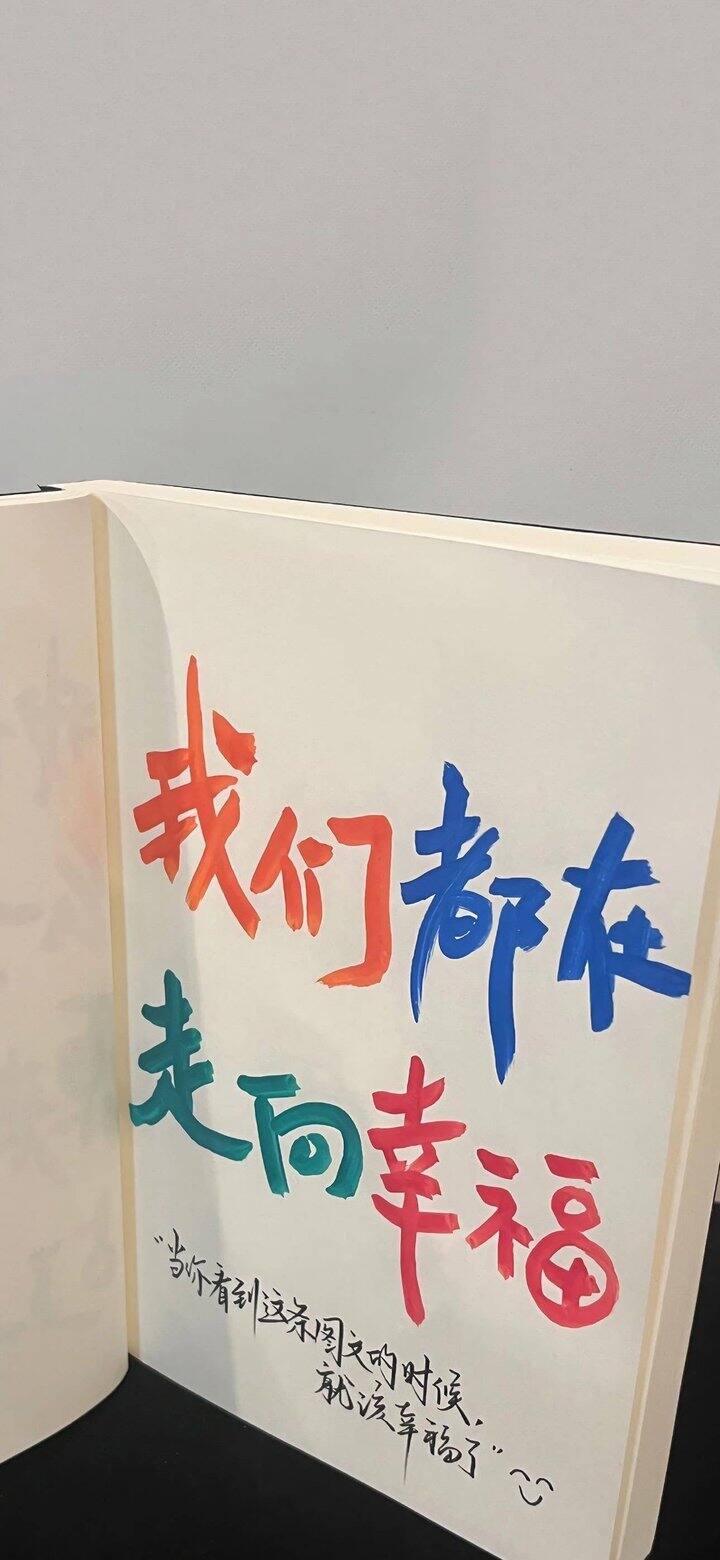 我们都在
走向幸福
“当你看到这条图文的时候,
就该幸福了”